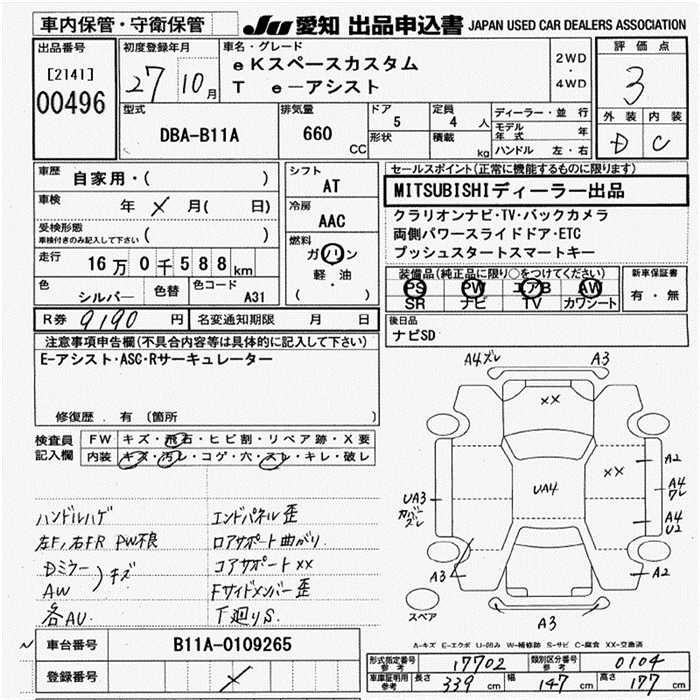 車内保管・守衛保管
JU 愛知 出品申込書 JAPAN USED CAR DEALERS ASSOCIATION
出品番号
[2141]
00496
初度登録年月
27 10月
車名・グレード
eKスペースカスタム
T e－アシスト
2WD
・
4WD
評価点
3
外装 内装
D C
型式
DBA-B11A
排気量
660
CC
ドア
5
形状
定員
4 人
積載
kg
ディーラー・並行
モデル年式 年
ハンドル 左・右
車歴
自家用・( )
車検
年 × 月( 日)
受検形態
車検付きのみ記入して下さい ( )
走行
16万0千588km
色
シルバー
色替
色コード
A31
シフト
AT
冷房
AAC
燃料
ガソリン
軽・油
( )
セールスポイント(正常に機能するものに限ります)
MITSUBISHIディーラー出品
クラリオンナビ・TV・バックカメラ
両側パワースライドドア・ETC
プッシュスタートスマートキー
装備品(純正品に限り○をつけてください)
PS PW エアB AW
SR ナビ TV カワシート
新車保証書
有・無
R券 9190 円
名変通知期限 月 日
後日品
ナビSD
注意事項申告欄(不具合内容等は具体的に記入して下さい)
E-アシスト・ASC・Rサーキュレーター
修復歴．有(箇所 )
検査員記入欄
FW キズ・飛石・ヒビ割・リペア跡・X要
内装 キズ・汚レ・コゲ・穴・スレ・キレ・破レ
ハンドルハゲ
左F,右FR PW不良
Dミラー
AW
) キズ
各AU
エンドパネル歪
ロアサポート曲がり
コアサポート××
Fサイドメンバー歪
下廻りS
A4ズレ A3
××
××
A2
A4
ワレ
UA4
UA3
カバーズレ
A4
U2
A3
A2
A3
スペア
A-キズ E-エクボ U-凹み W-補修跡 S-サビ C-腐食 XX-交換済
車台番号
B11A-0109265
登録番号
×
形式指定番号
参考
17702
類別区分番号
参考
0104
車庫証明用
参考
長さ 339 cm
幅 147 cm
高さ 177 cm